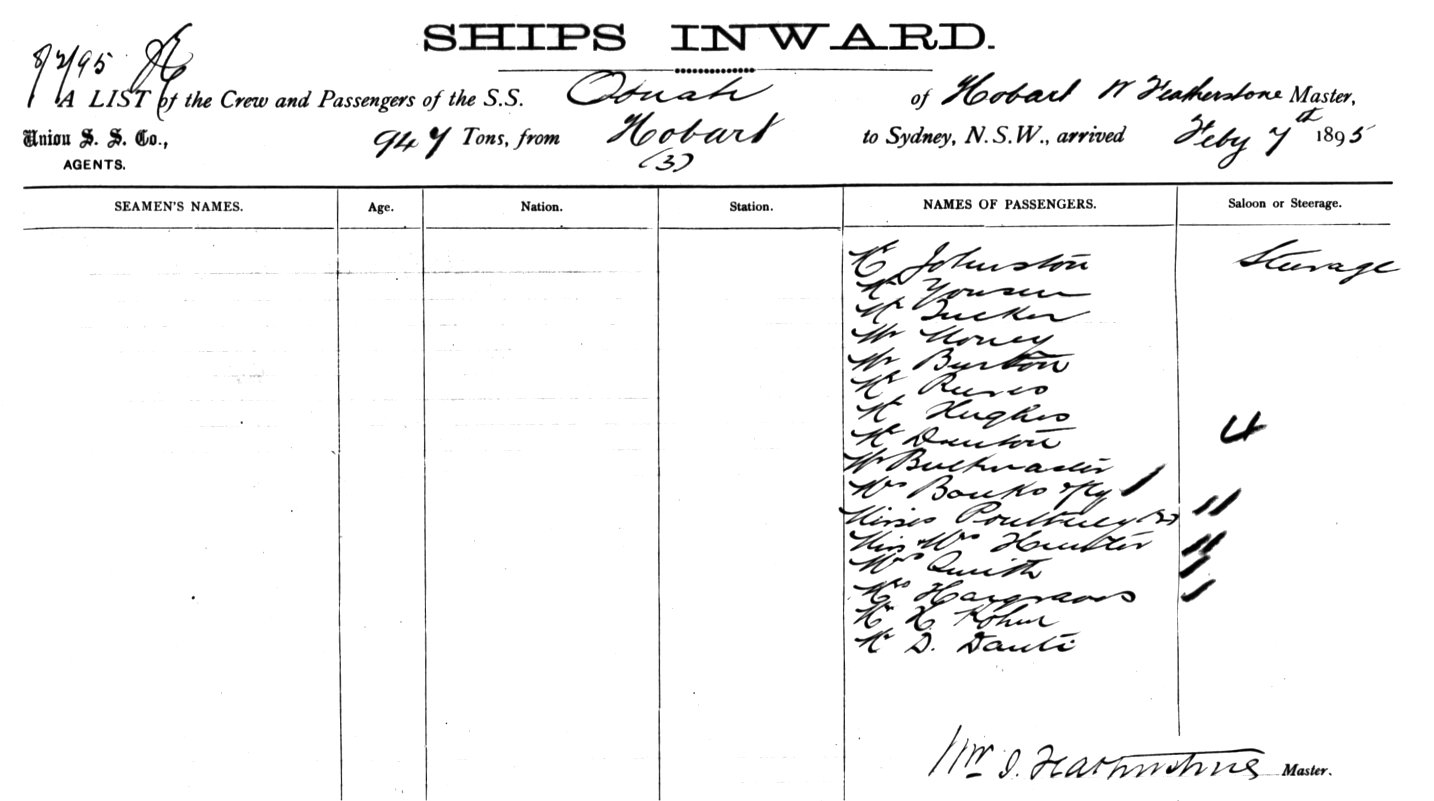 SHIPS INWARD.
8/2/95
A LIST of the Crew and Passengers of the S.S. Oonah of Hobart W Featherstone Master,
Union S. S. Co., 947 Tons, from Hobart to Sydney, N.S.W., arrived Feby 7th 1895
AGENTS. (3)
SEAMEN'S NAMES. Age. Nation. Station. NAMES OF PASSENGERS. Saloon or Steerage.
Mr Johnston Steerage
Mr
Mr Tucker
Mr Money
Mr Burton
Mr Reeves
Mr Hughes 4
Mr Denton
Mr Buckmaster
Mrs Banks & fly
Misses Poultney (2) 11
Miss & Mrs Hunter 11
Mrs Smith 1
Mrs Hargraves 1
Mr H
Mr D.
Wm J. Featherstone Master.